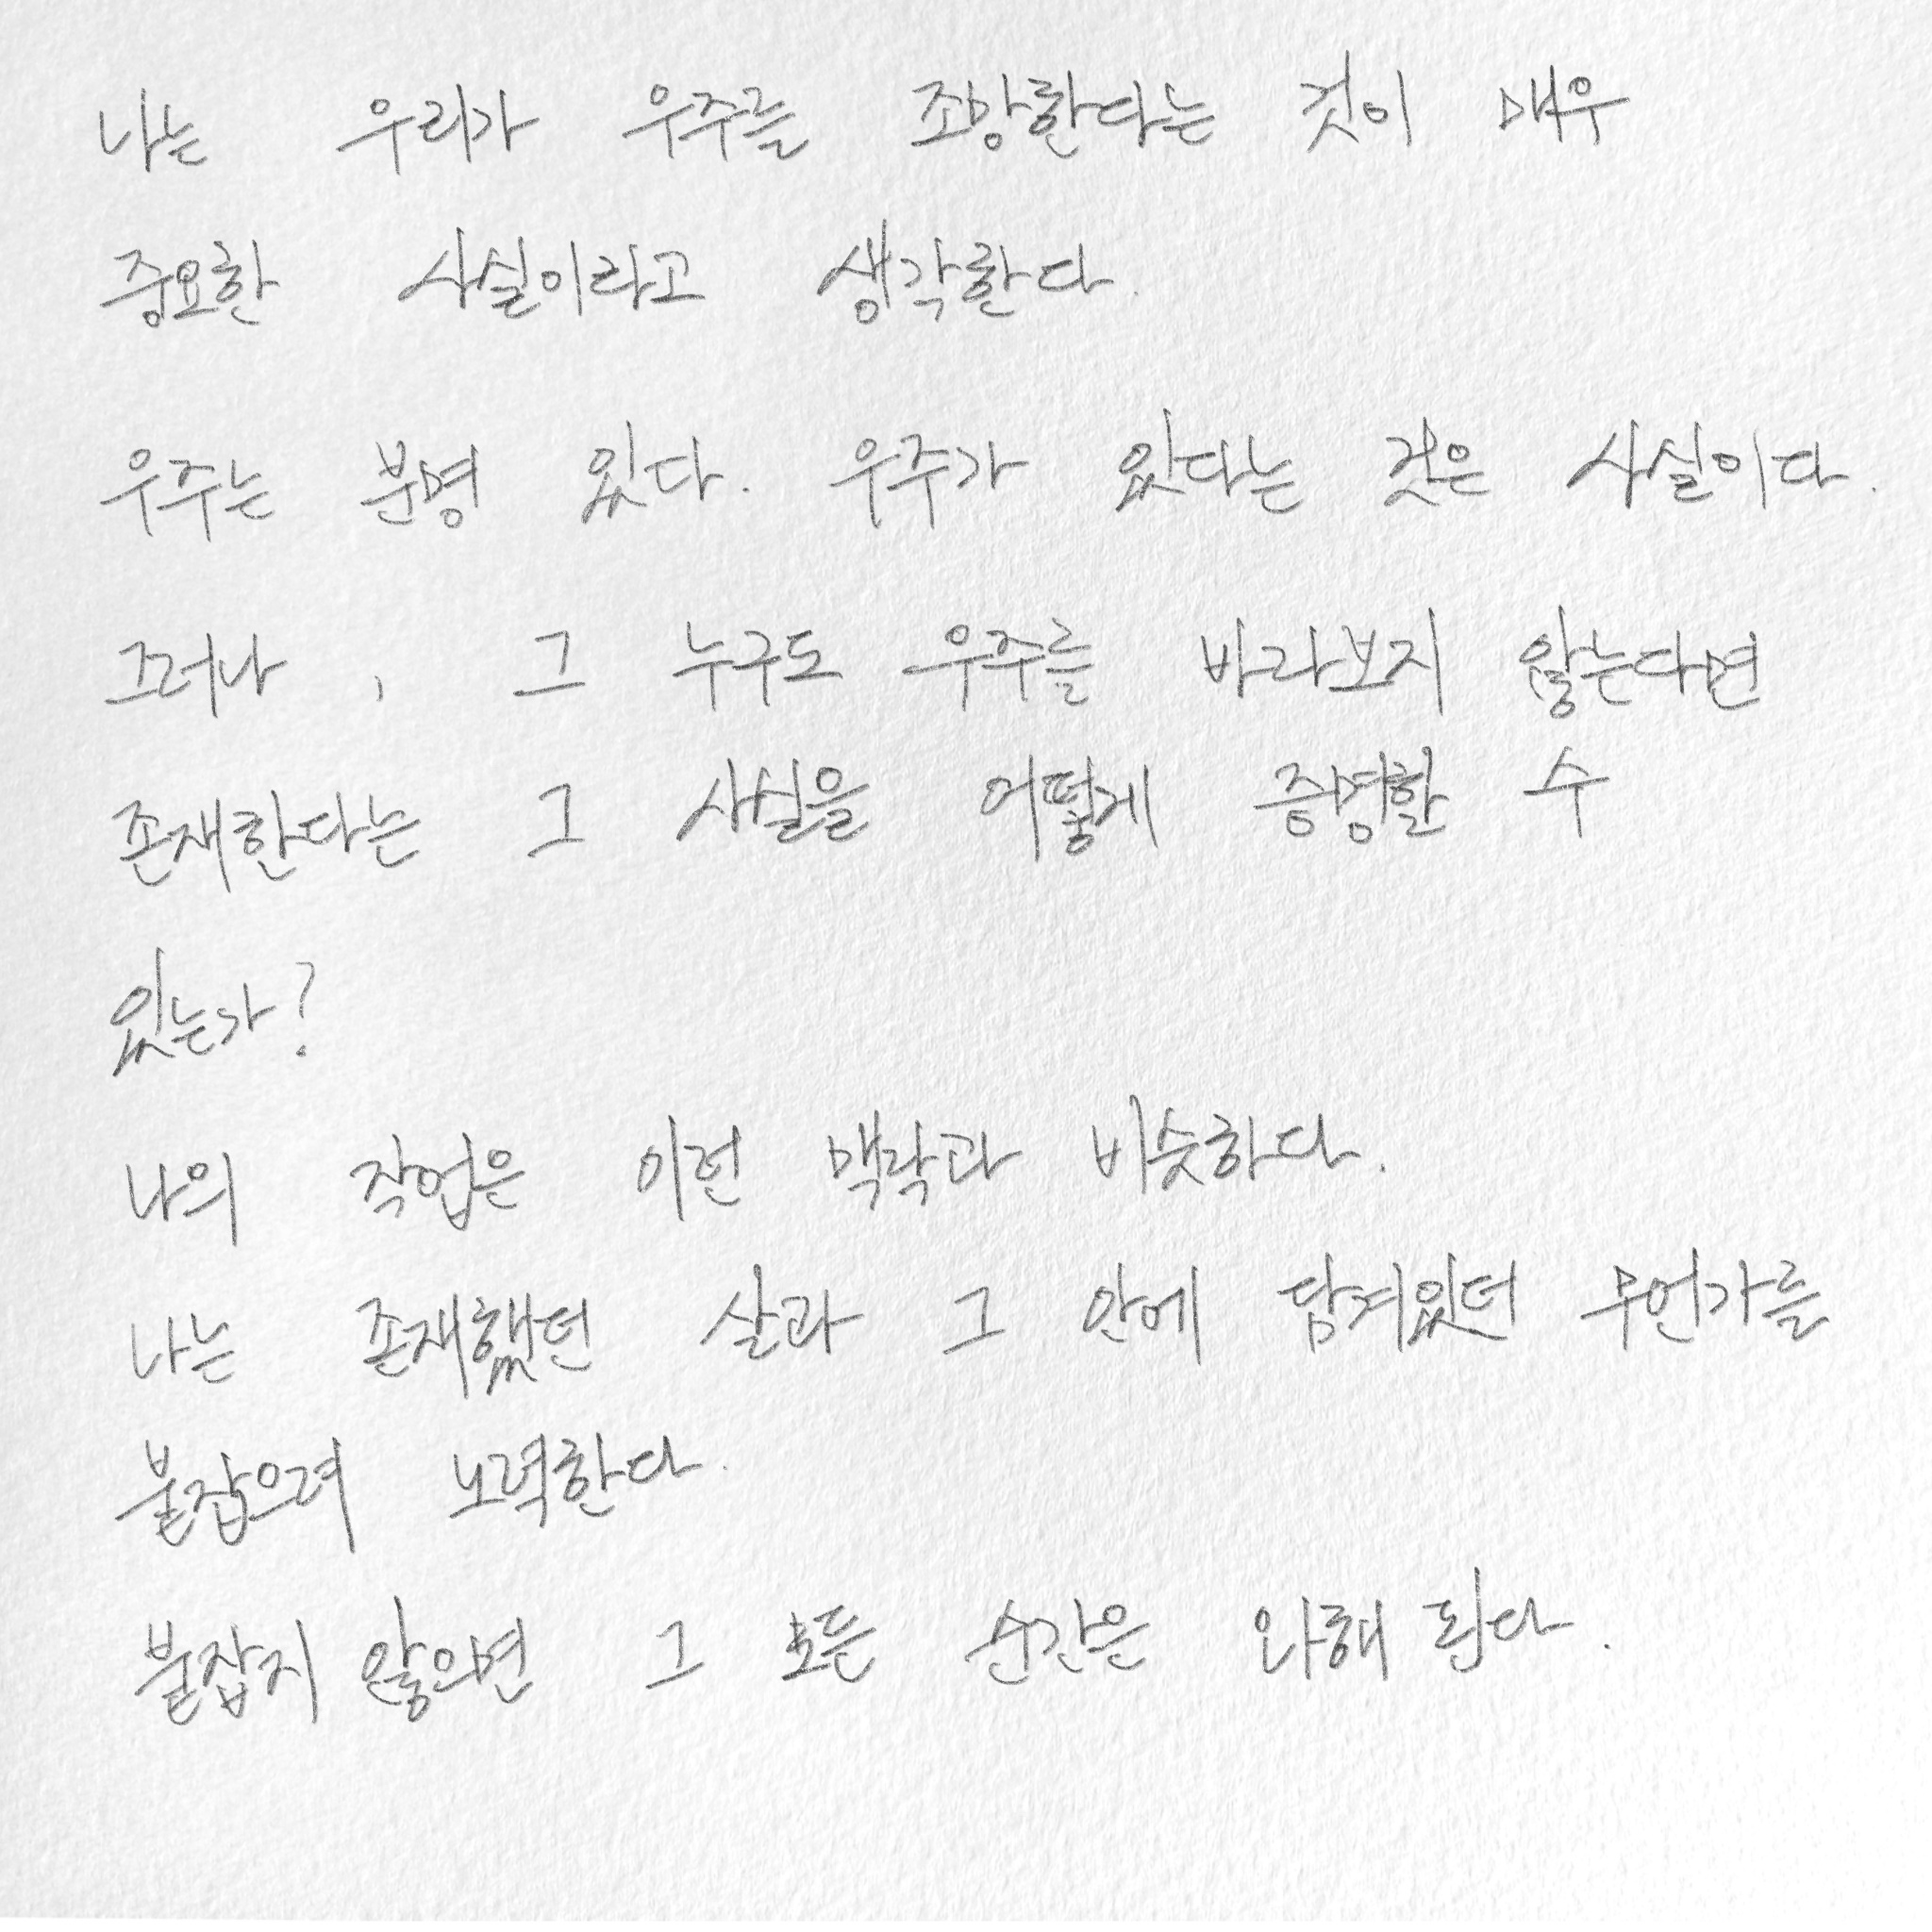 나는 우리가 우주를 조망한다는 것이 매우
중요한 사실이라고 생각한다.
우주는 분명 있다. 우주가 있다는 것은 사실이다.
그러나, 그 누구도 우주를 바라보지 않는다면
존재한다는 그 사실을 어떻게 증명할 수
있는가?
나의 작업은 이런 맥락과 비슷하다.
나는 존재했던 살과 그 안에 담겨있던 무언가를
붙잡으려 노력한다.
붙잡지 않으면 그 모든 순간은 와해 된다.